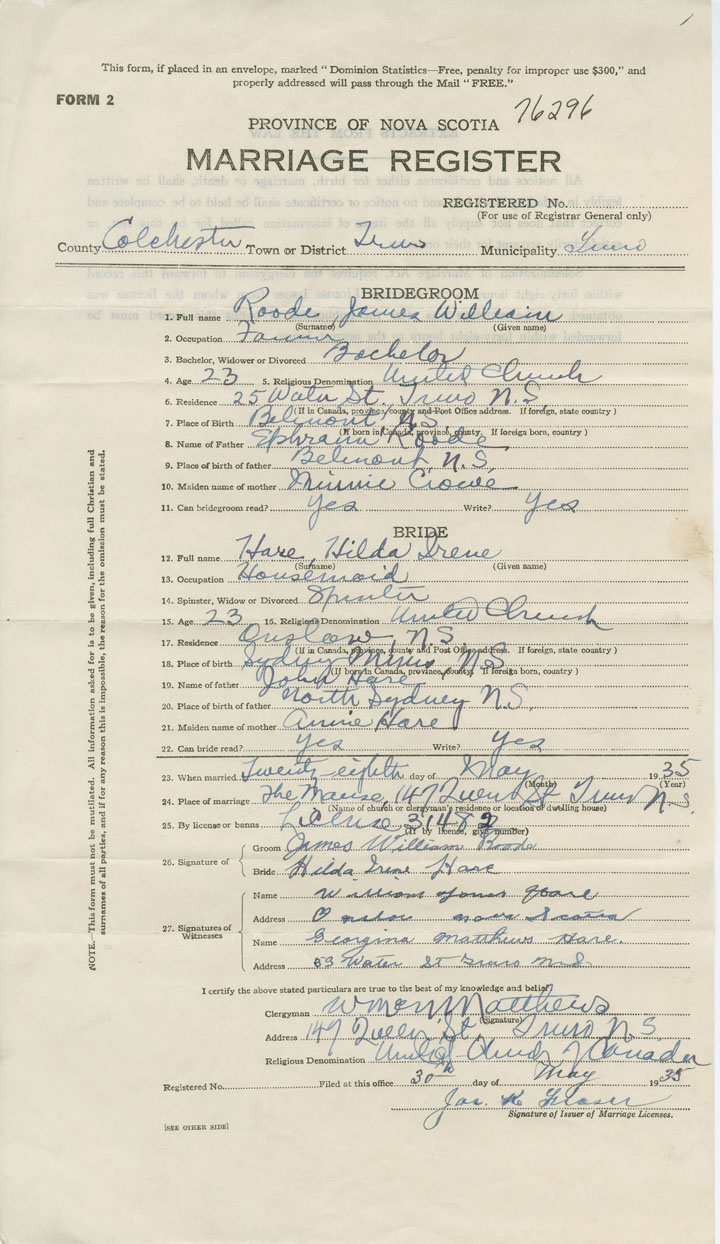 This form, if placed in an envelope, marked "Dominion Statistics—Free, penalty for improper use $300," and
properly addressed will pass through the Mail "FREE."
FORM 2
76296
PROVINCE OF NOVA SCOTIA
MARRIAGE REGISTER
REGISTERED No.
(For use of Registrar General only)
County Colchester Town or District Truro Municipality Truro
BRIDEGROOM
1. Full name Roode, James William
(Surname) (Given name)
2. Occupation Farmer
3. Bachelor, Widower or Divorced Bachelor
4. Age 23 5. Religious Denomination United Church
6. Residence 25 Water St. Truro N.S.
(If in Canada, province, county and Post Office address. If foreign, state country )
7. Place of Birth Belmont, N.S.
(If born in Canada, province, county. If foreign born, country )
8. Name of Father Ephraim Roode
9. Place of birth of father Belmont, N.S.
10. Maiden name of mother Minnie Crowe
11. Can bridegroom read? Yes Write? Yes
BRIDE
12. Full name Hare, Hilda Irene
(Surname) (Given name)
13. Occupation Housemaid
14. Spinster, Widow or Divorced Spinster
15. Age 23 16. Religious Denomination United Church
17. Residence Onslow, N.S.
(If in Canada, province, county and Post Office address. If foreign, state country )
18. Place of birth Sydney Mines, N.S.
(If born in Canada, province, county. If foreign, country )
19. Name of father John Hare
20. Place of birth of father North Sydney N.S.
21. Maiden name of mother Annie Hare
22. Can bride read? Yes Write? Yes
23. When married Twenty-eighth day of May 1935
(Month) (Year)
24. Place of marriage The Manse, 147 Queen St Truro N.S.
(Name of church or clergyman's residence or location of dwelling house)
25. By license or banns License 31482
(If by license, give number)
26. Signature of Groom James William Roode
Bride Hilda Irene Hare
27. Signatures of Witnesses
Name William James Hare
Address Onslow Nova Scotia
Name Georgina Matthews Hare.
Address 69 Water St Truro N.S.
I certify the above stated particulars are true to the best of my knowledge and belief
Clergyman Matthews
(Signature)
Address 147 Queen St., Truro N.S.
Religious Denomination United Church of Canada
Registered No. Filed at this office 30th day of May 1935
Jas. K. Fraser
Signature of Issuer of Marriage Licenses.
[SEE OTHER SIDE]
NOTE.—This form must not be mutilated. All information asked for is to be given, including full Christian and
surnames of all parties, and if for any reason this is impossible, the reason for the omission must be stated.